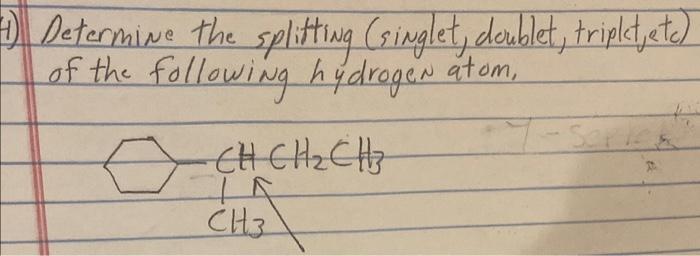 4) Determine the splitting (singlet, doublet, triplet, etc)
of the following hydrogen atom.
CH CH2 CH3
CH3